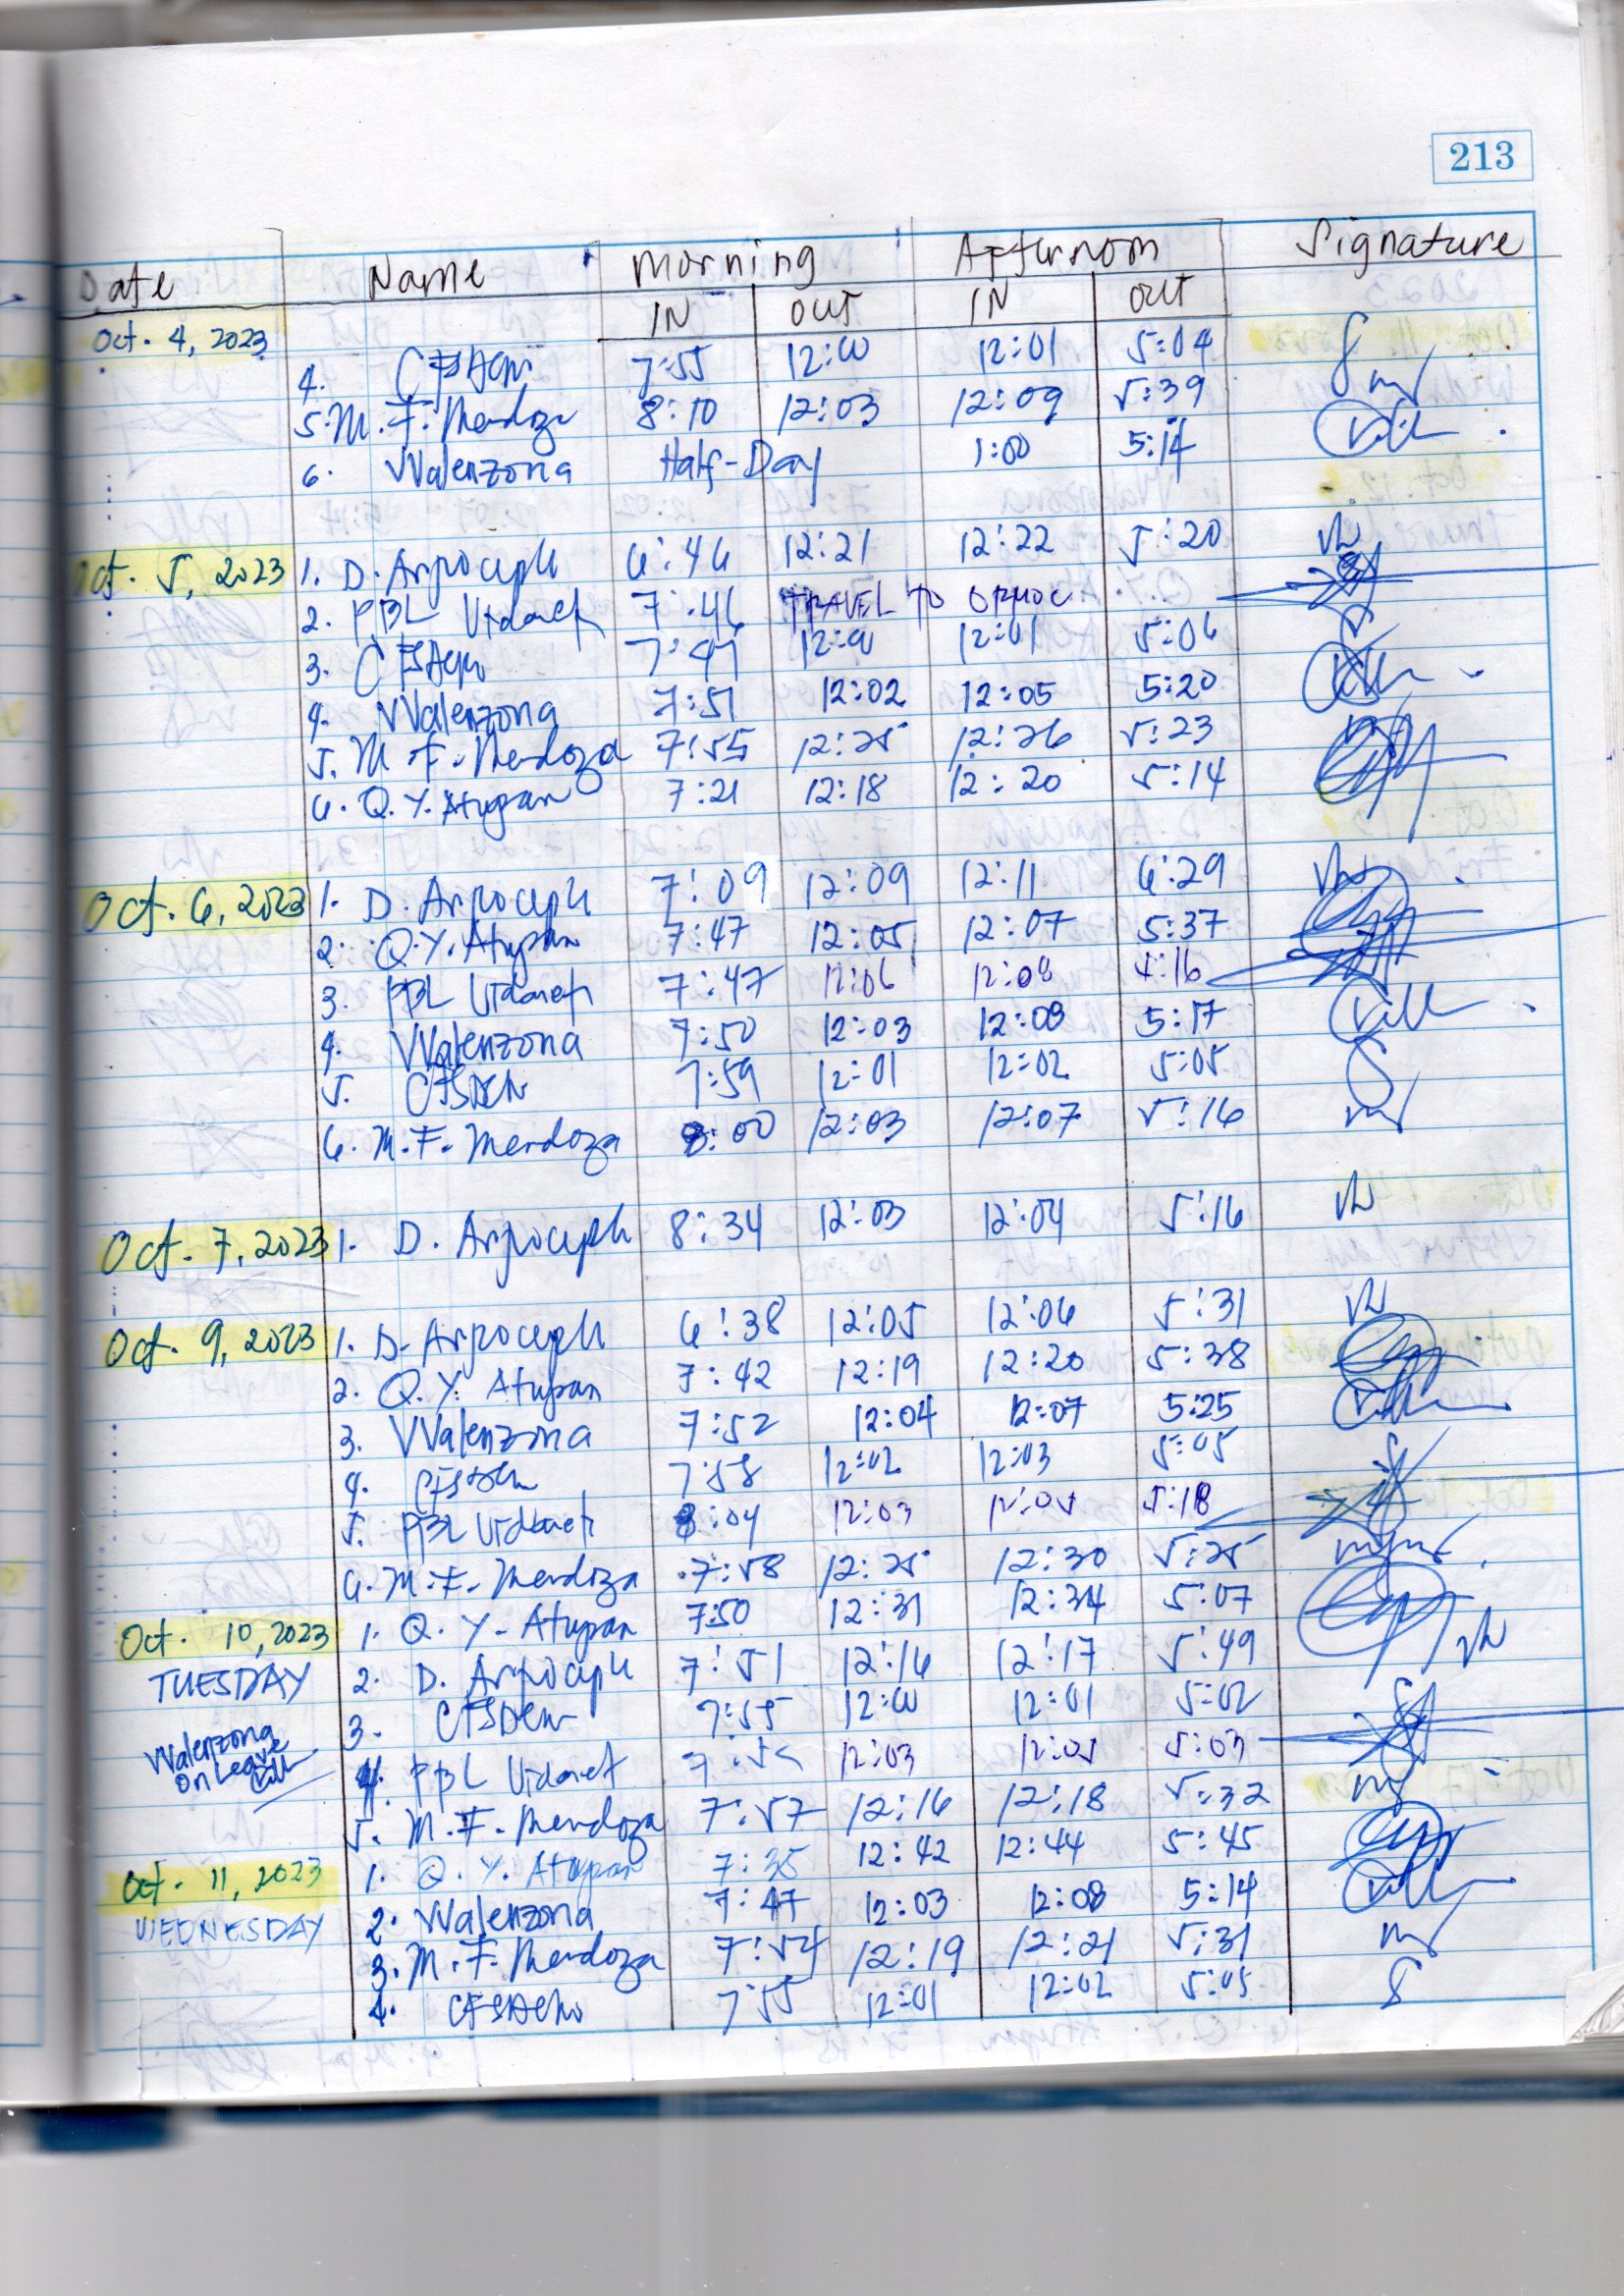 213
Date Name Morning Afternoon Signature
IN OUT IN OUT
Oct. 4, 2023
4. 7:55 12:00 12:01 5:04
5. M. F. Mendoza 8:10 12:03 12:09 5:39
6. VValenzona Half-Day 1:00 5:14
Oct. 5, 2023 1. D. 6:46 12:21 12:22 5:20
2. PBL 7:46 TRAVEL TO ORMOC
3. 7:47 12:00 12:01 5:06
4. VValenzona 7:51 12:02 12:05 5:20
5. M. F. Mendoza 7:55 12:25 12:26 5:23
6. Q. Y. Atupan 7:21 12:18 12:20 5:14
Oct. 6, 2023 1. D. 7:09 12:09 12:11 6:29
2. Q. Y. Atupan 7:47 12:05 12:07 5:37
3. PBL 7:47 12:06 12:08 4:16
4. VValenzona 7:50 12:03 12:08 5:17
5. 7:59 12:01 12:02 5:05
6. M. F. Mendoza 8:00 12:03 12:07 5:16
Oct. 7, 2023 1. D. 8:34 12:03 12:04 5:16
Oct. 9, 2023 1. D. 6:38 12:05 12:06 5:31
2. Q. Y. Atupan 7:42 12:19 12:20 5:38
3. VValenzona 7:52 12:04 12:07 5:25
4. 7:58 12:02 12:03 5:05
5. PBL 8:04 12:03 12:05 5:18
6. M. F. Mendoza 7:58 12:25 12:30 5:25
Oct. 10, 2023 1. Q. Y. Atupan 7:50 12:31 12:34 5:07
TUESDAY 2. D. 7:51 12:16 12:17 5:49
3. 7:55 12:00 12:01 5:02
VValenzona
on Leave
4. PBL 12:03 12:05 5:03
5. M. F. Mendoza 7:57 12:16 12:18 5:32
Oct. 11, 2023 1. Q. Y. Atupan 7:35 12:42 12:44 5:45
WEDNESDAY 2. VValenzona 7:47 12:03 12:08 5:14
3. M. F. Mendoza 7:54 12:19 12:21 5:31
4. 7:55 12:01 12:02 5:05